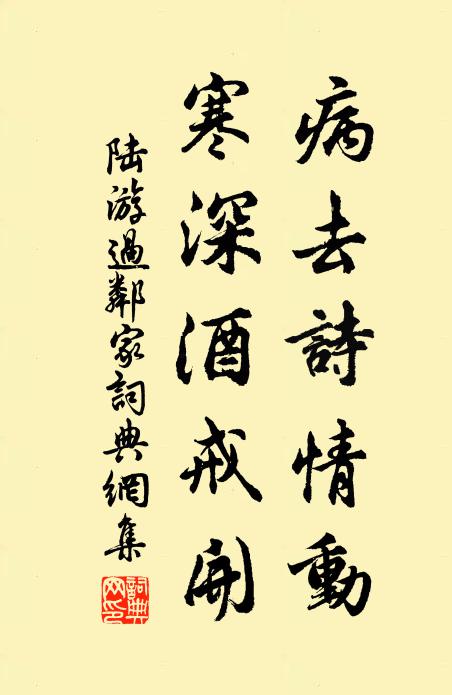 病去詩情動
寒深酒戒開
陸游過鄰家詞典網集
詞典網印